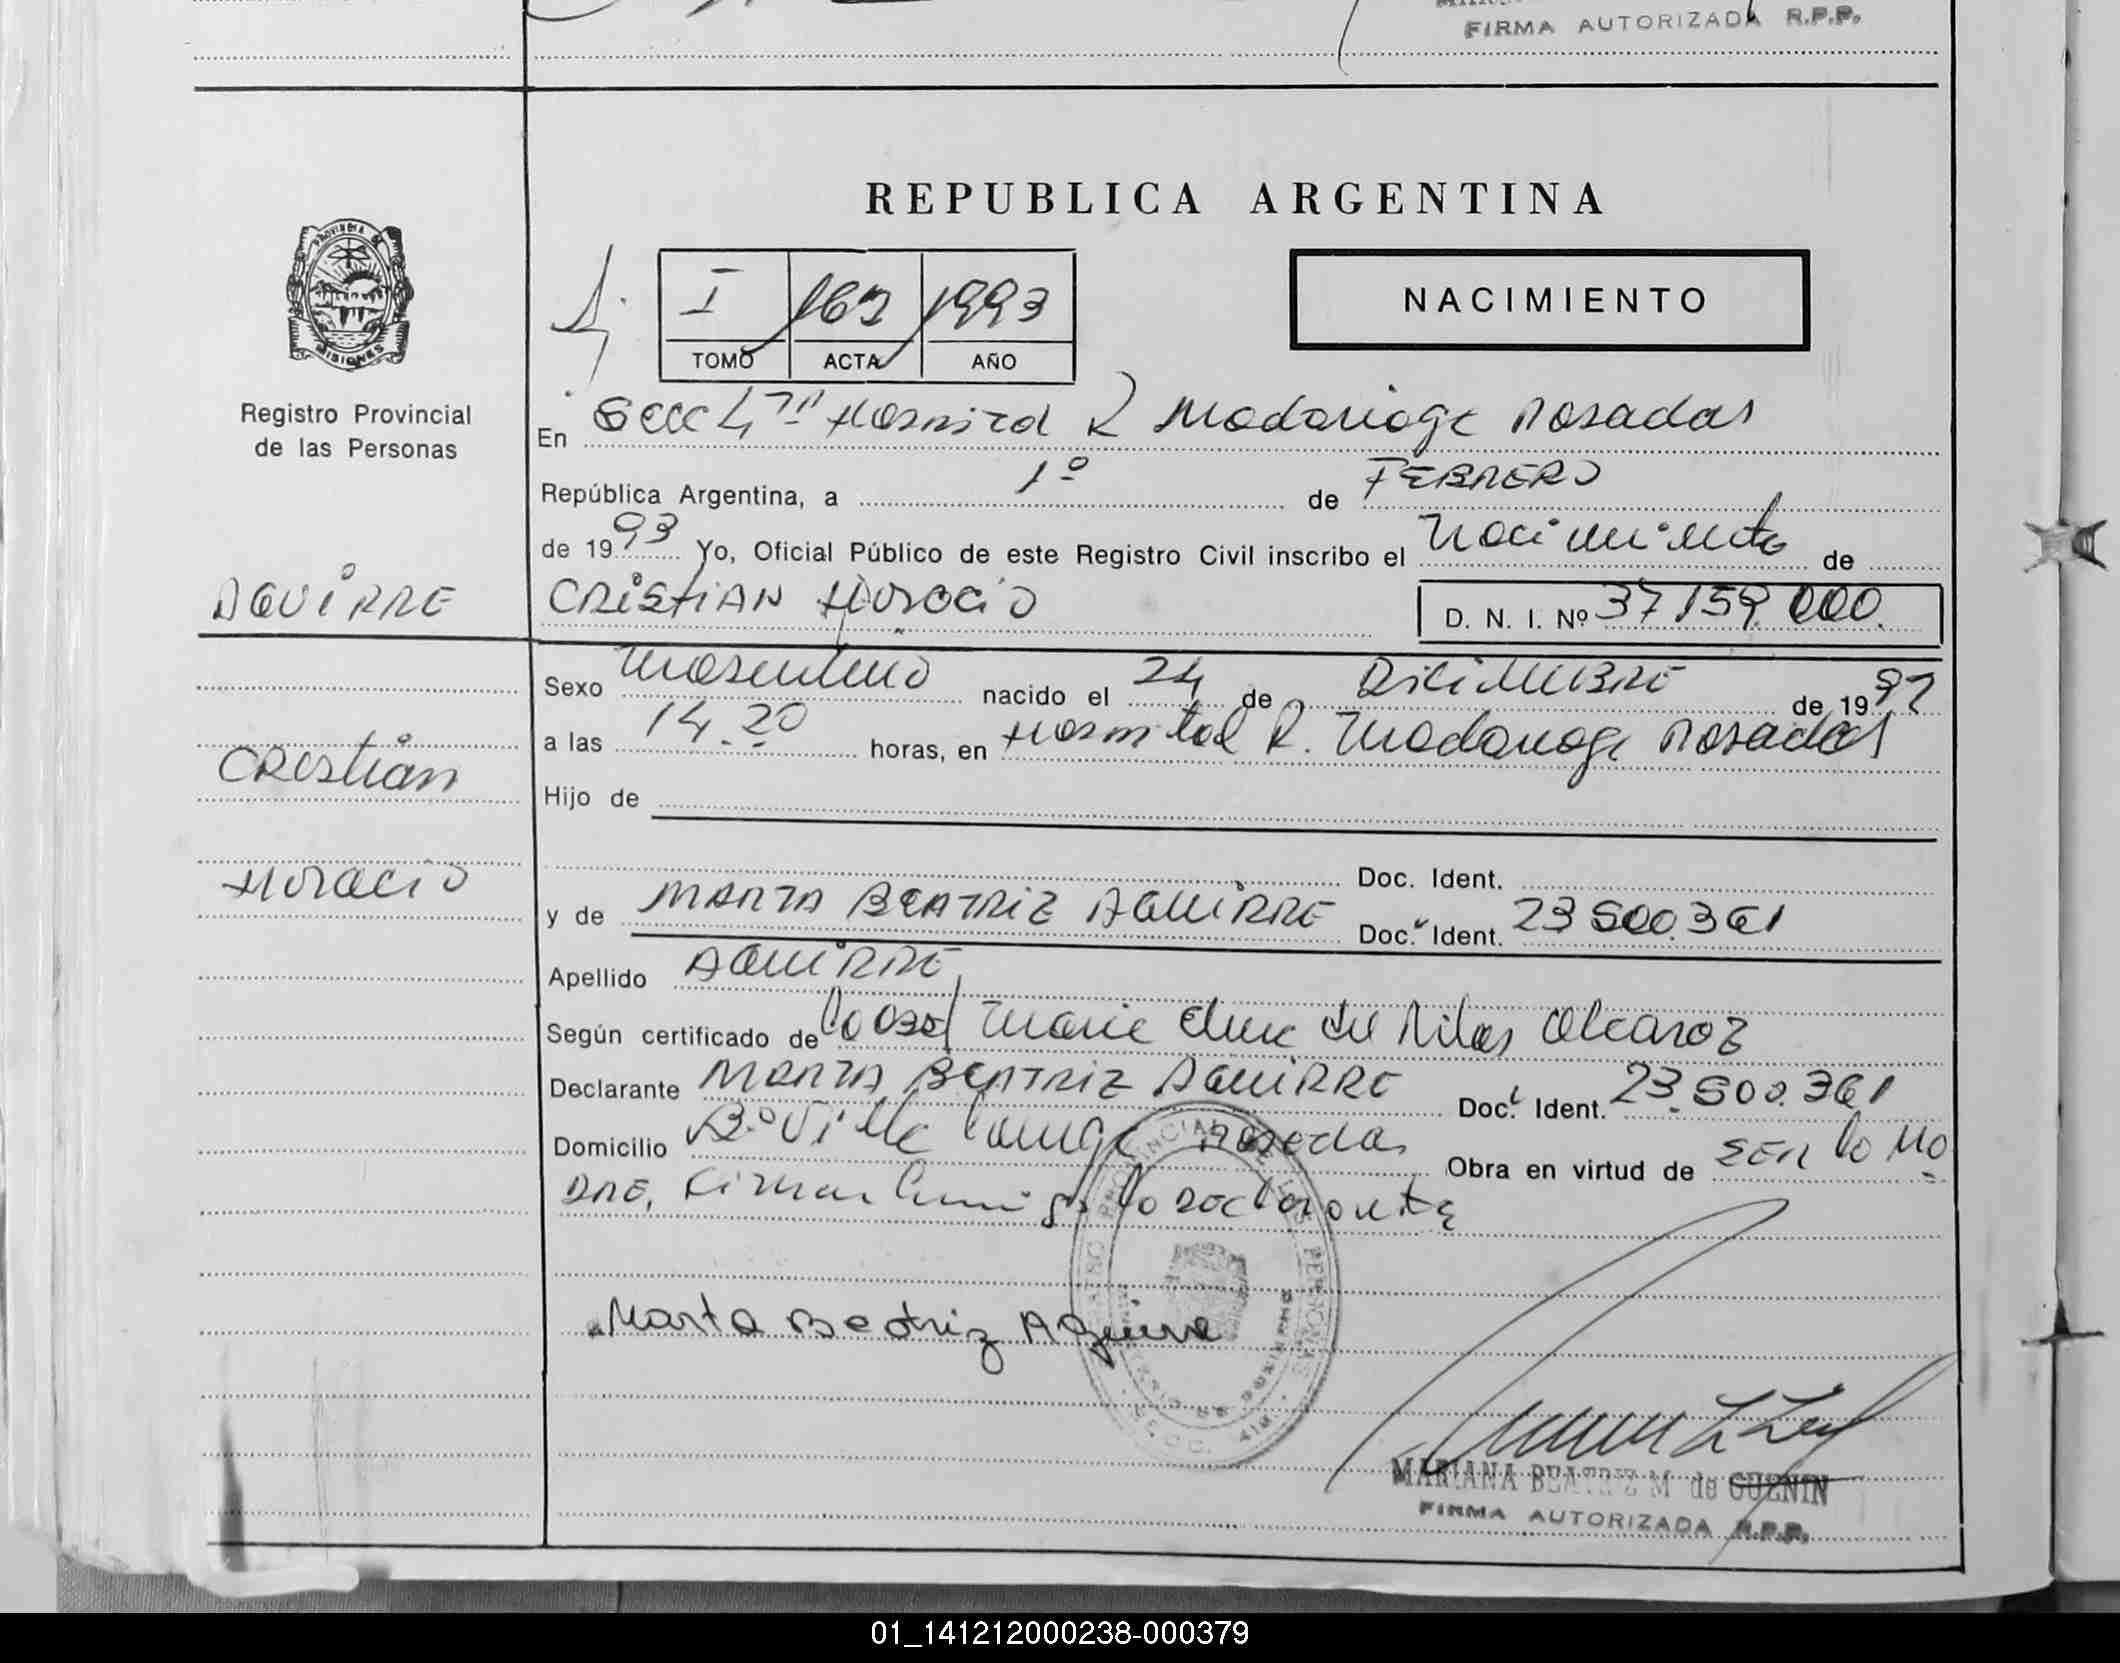 FIRMA AUTORIZADA R.P.P.
REPUBLICA ARGENTINA
PROVINCIA DE MISIONES
I 1993
TOMO ACTA AÑO
NACIMIENTO
Registro Provincial
de las Personas
En Secc 4ta Hospital R Madariaga Posadas
República Argentina, a 1º de FEBRERO
de 1993 Yo, Oficial Público de este Registro Civil inscribo el Nacimiento de
AGUIRRE
CRISTIAN HORACIO D. N. I. Nº 37159.000.
Sexo Masculino nacido el 24 de DICIEMBRE de 1992
a las 14.20 horas, en Hospital R. Madariaga Posadas
Cristian
Hijo de
Doc. Ident.
Horacio
y de MARTA BEATRIZ AGUIRRE Doc. Ident. 23 500.361
Apellido AGUIRRE
Según certificado de la Obst Maria Elena del Pilar Alcaraz
Declarante MARTA BEATRIZ AGUIRRE Doc. Ident. 23.500.361
Domicilio Bº Villa Posadas Obra en virtud de SER la MA
DRE, Firma la Declarante
Marta Beatriz Aguirre
MARIANA BEATRIZ M de GUENIN
FIRMA AUTORIZADA R.P.P.
01_141212000238-000379